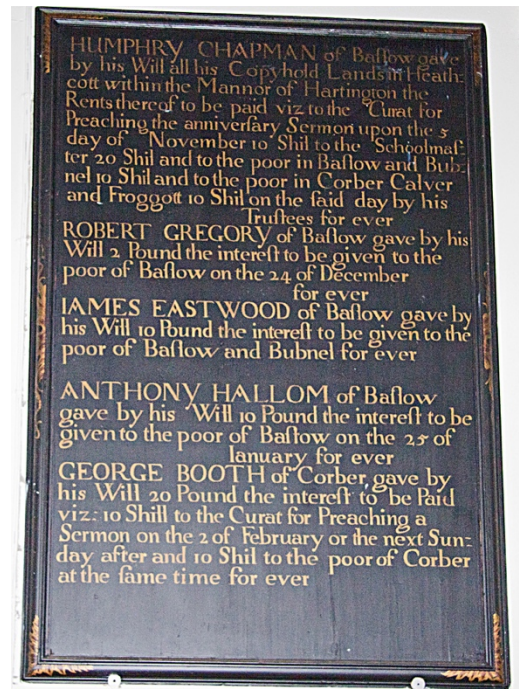 HUMPHRY CHAPMAN of Baſlow gave
by his Will all his Copyhold Lands in Heath-
cott within the Mannor of Hartington the
Rents thereof to be paid viz to the Curat for
Preaching the anniverſary Sermon upon the 5
day of November 10 Shil to the Schoolmaſ-
ter 20 Shil and to the poor in Baſlow and Bub-
nel 10 Shil and to the poor in Corber Calver
and Froggott 10 Shil on the ſaid day by his
Truſtees for ever
ROBERT GREGORY of Baſlow gave by his
Will 2 Pound the intereſt to be given to the
poor of Baſlow on the 24 of December
for ever
IAMES EASTWOOD of Baſlow gave by
his Will 10 Pound the intereſt to be given to the
poor of Baſlow and Bubnel for ever
ANTHONY HALLOM of Baſlow
gave by his Will 10 Pound the intereſt to be
given to the poor of Baſlow on the 25 of
Ianuary for ever
GEORGE BOOTH of Corber, gave by
his Will 20 Pound the intereſt to be Paid
viz: 10 Shill to the Curat for Preaching a
Sermon on the 2 of February or the next Sun-
day after and 10 Shil to the poor of Corber
at the ſame time for ever